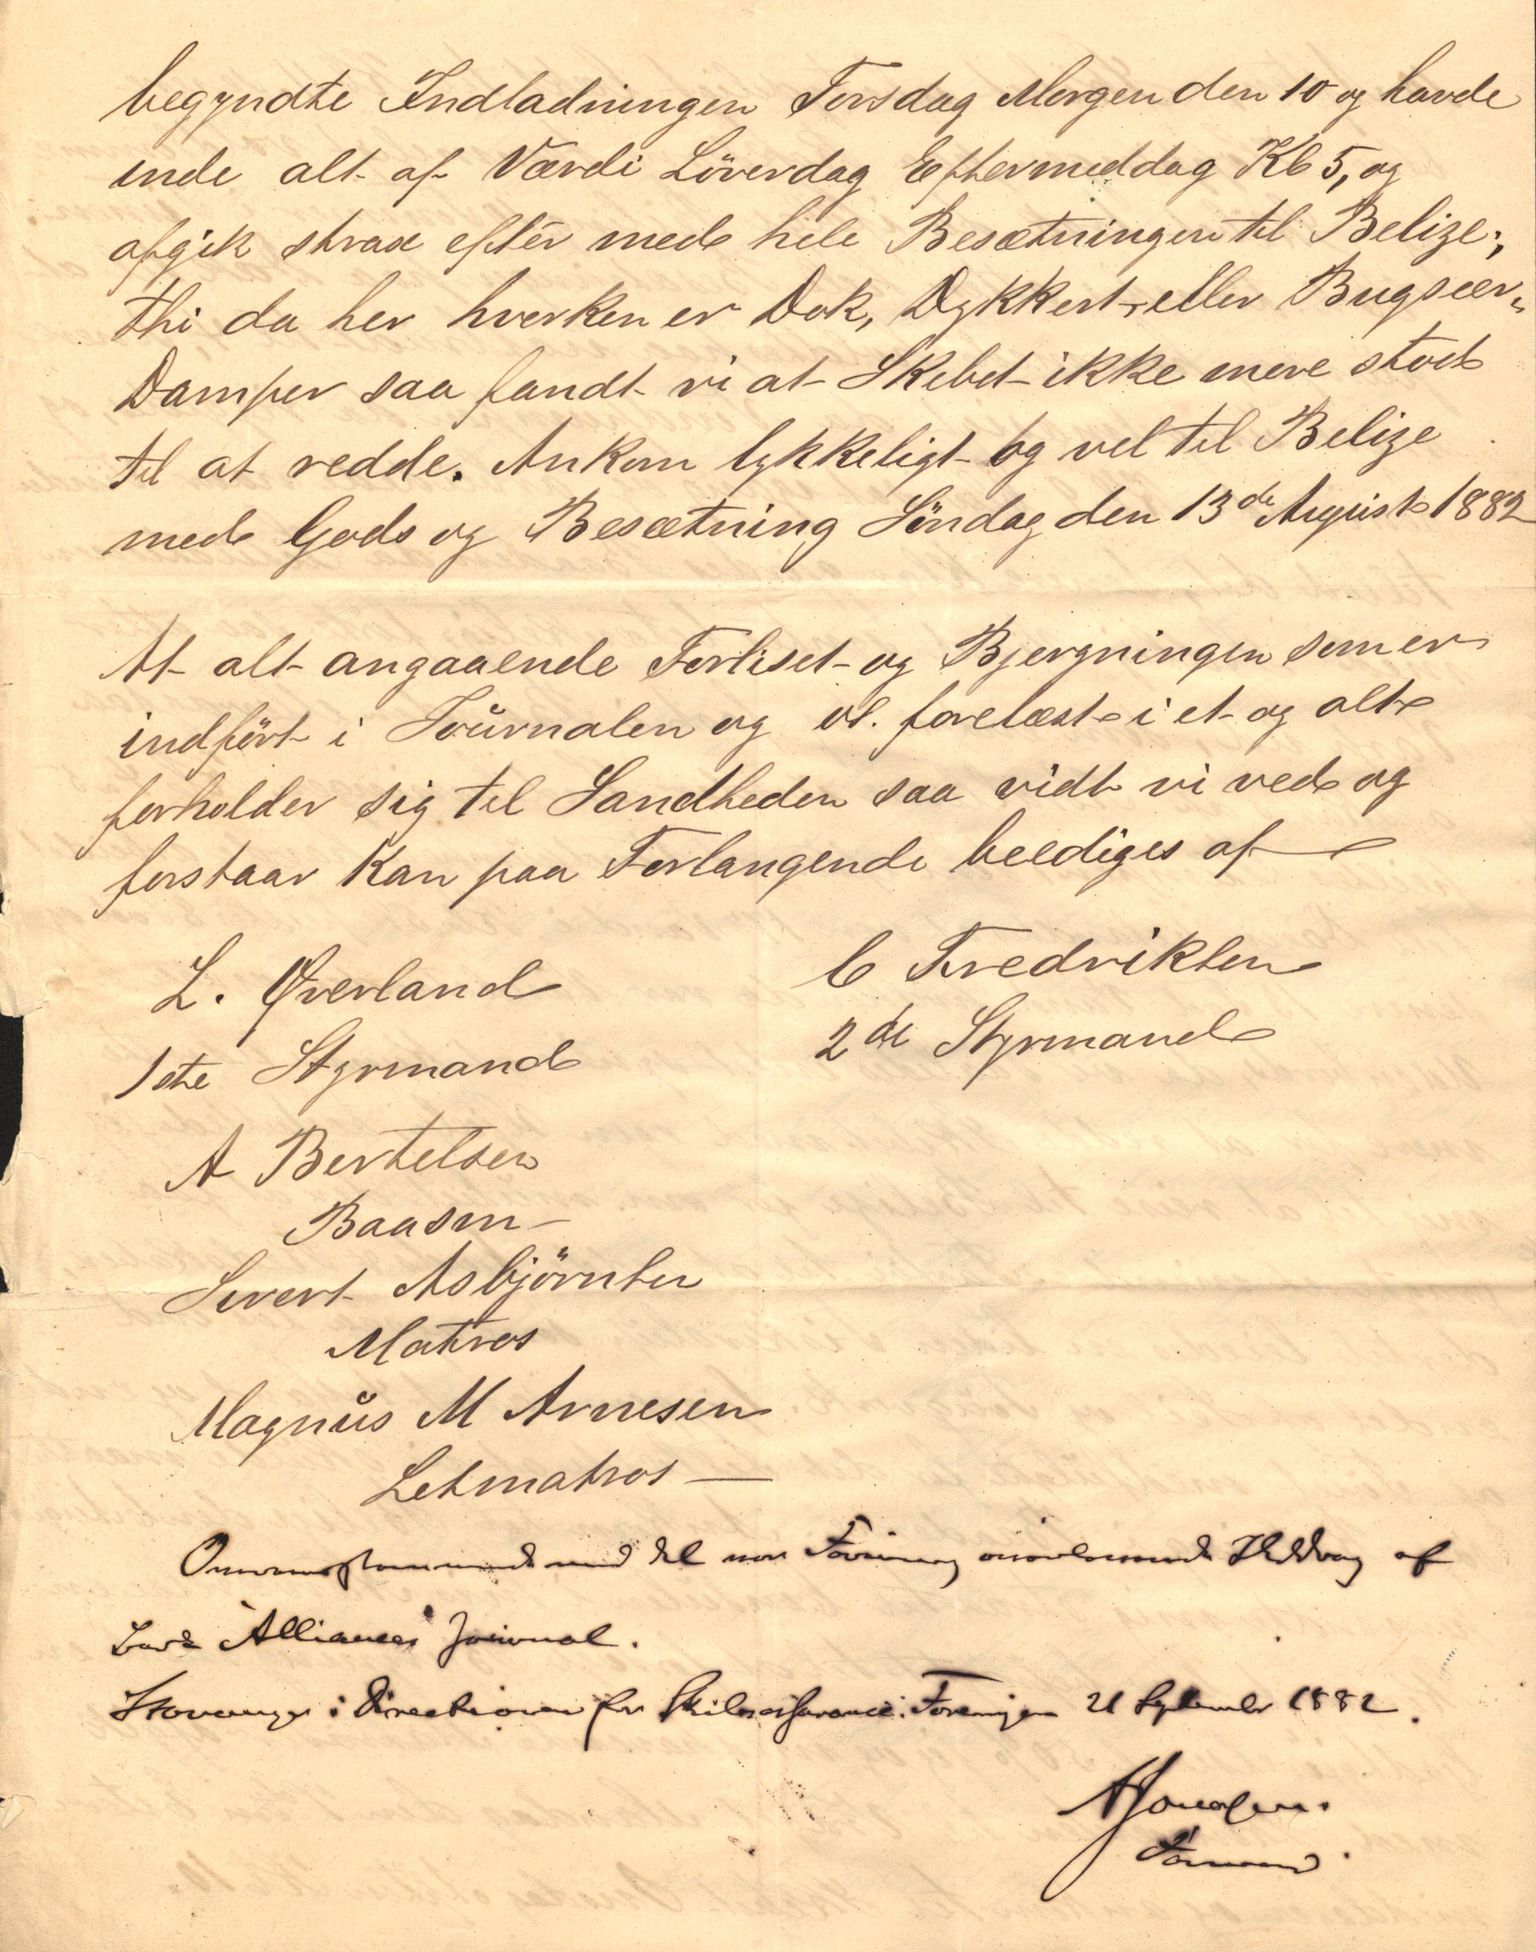 begyndte Indladningen Torsdag Morgen den 10 og havde
inde alt af Værdi Löverdag Eftermeddag Kl 5, og
afgik strax efter med hele Besætningen til Belize;
thi da her hverken er Dok, Dykkert, eller Bugseer-
Damper saa fandt vi at Skebet ikke mere stod
til at redde. Ankom lykkeligt og vel til Belize
med Gods og Besætning Söndag den 13de August 1882
At alt angaaende Forliset og Bjergningen som er
indfört i Journalen og os forelæst i et og alt
forholder sig til Sandheden saa vidt vi ved og
forstaar kan paa Forlangende beediges af
L. Øverland
1ste Styrmand
C Fredriksen
2de Styrmand
A Bertelsen
Baasm
Sivert Asbjörnsen
Matros
Magnus M Arnesen
Letmatros
Overensstemmende med det vor Forening Uddrag af
Bark "Alliances" Journal.
Stavanger i Directionen for Skibsassurance Foreningen 21 September 1882.
Formand.